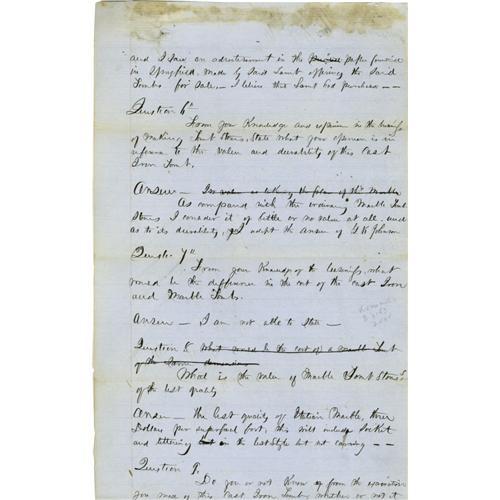 and I saw an advertisement in the paper printed
in Springfield, made by said Lamb offering the said
Tombs for sale, I believe that Lamb had purchased —
Question 6"
From your Knowledge and experience in the business
of making Tomb Stones, State what your opinion is in
reference to the value and durability of this Cast
Iron Tomb.
Answer —
As compared with the ordinary Marble Tomb
Stones I consider it of little or no value at all. and
as to its durability, I adopt the answer of G R Johnson
Questn. 7"
From your Knowledge of the business, what
would be the difference in the cost of the Cast Iron
and Marble Tombs.
Answer — I am not able to State —
Question 8 what would be the cost of a marble Tomb
of the same dimension
What is the value of Marble Tomb Stones
of the best quality
Answer — the best quality of Italian Marble, three
Dollars per superficial foot, this will include Socket
and lettering in the best style but not carving — —
Question 9.
Do you or not Know from the examination
you made of this Cast Iron Tomb, whether or not it